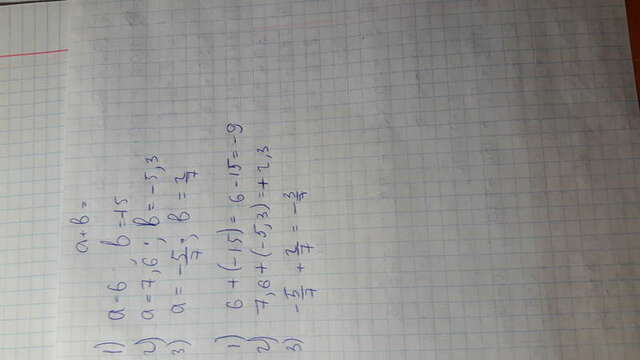 a+b=
1) a=6; b=-15
2) a=7,6; b=-5,3
3) a=-5/7; b=2/7
1) 6+(-15)=6-15=-9
2) 7,6+(-5,3)=+2,3
3) -5/7+2/7=-3/7